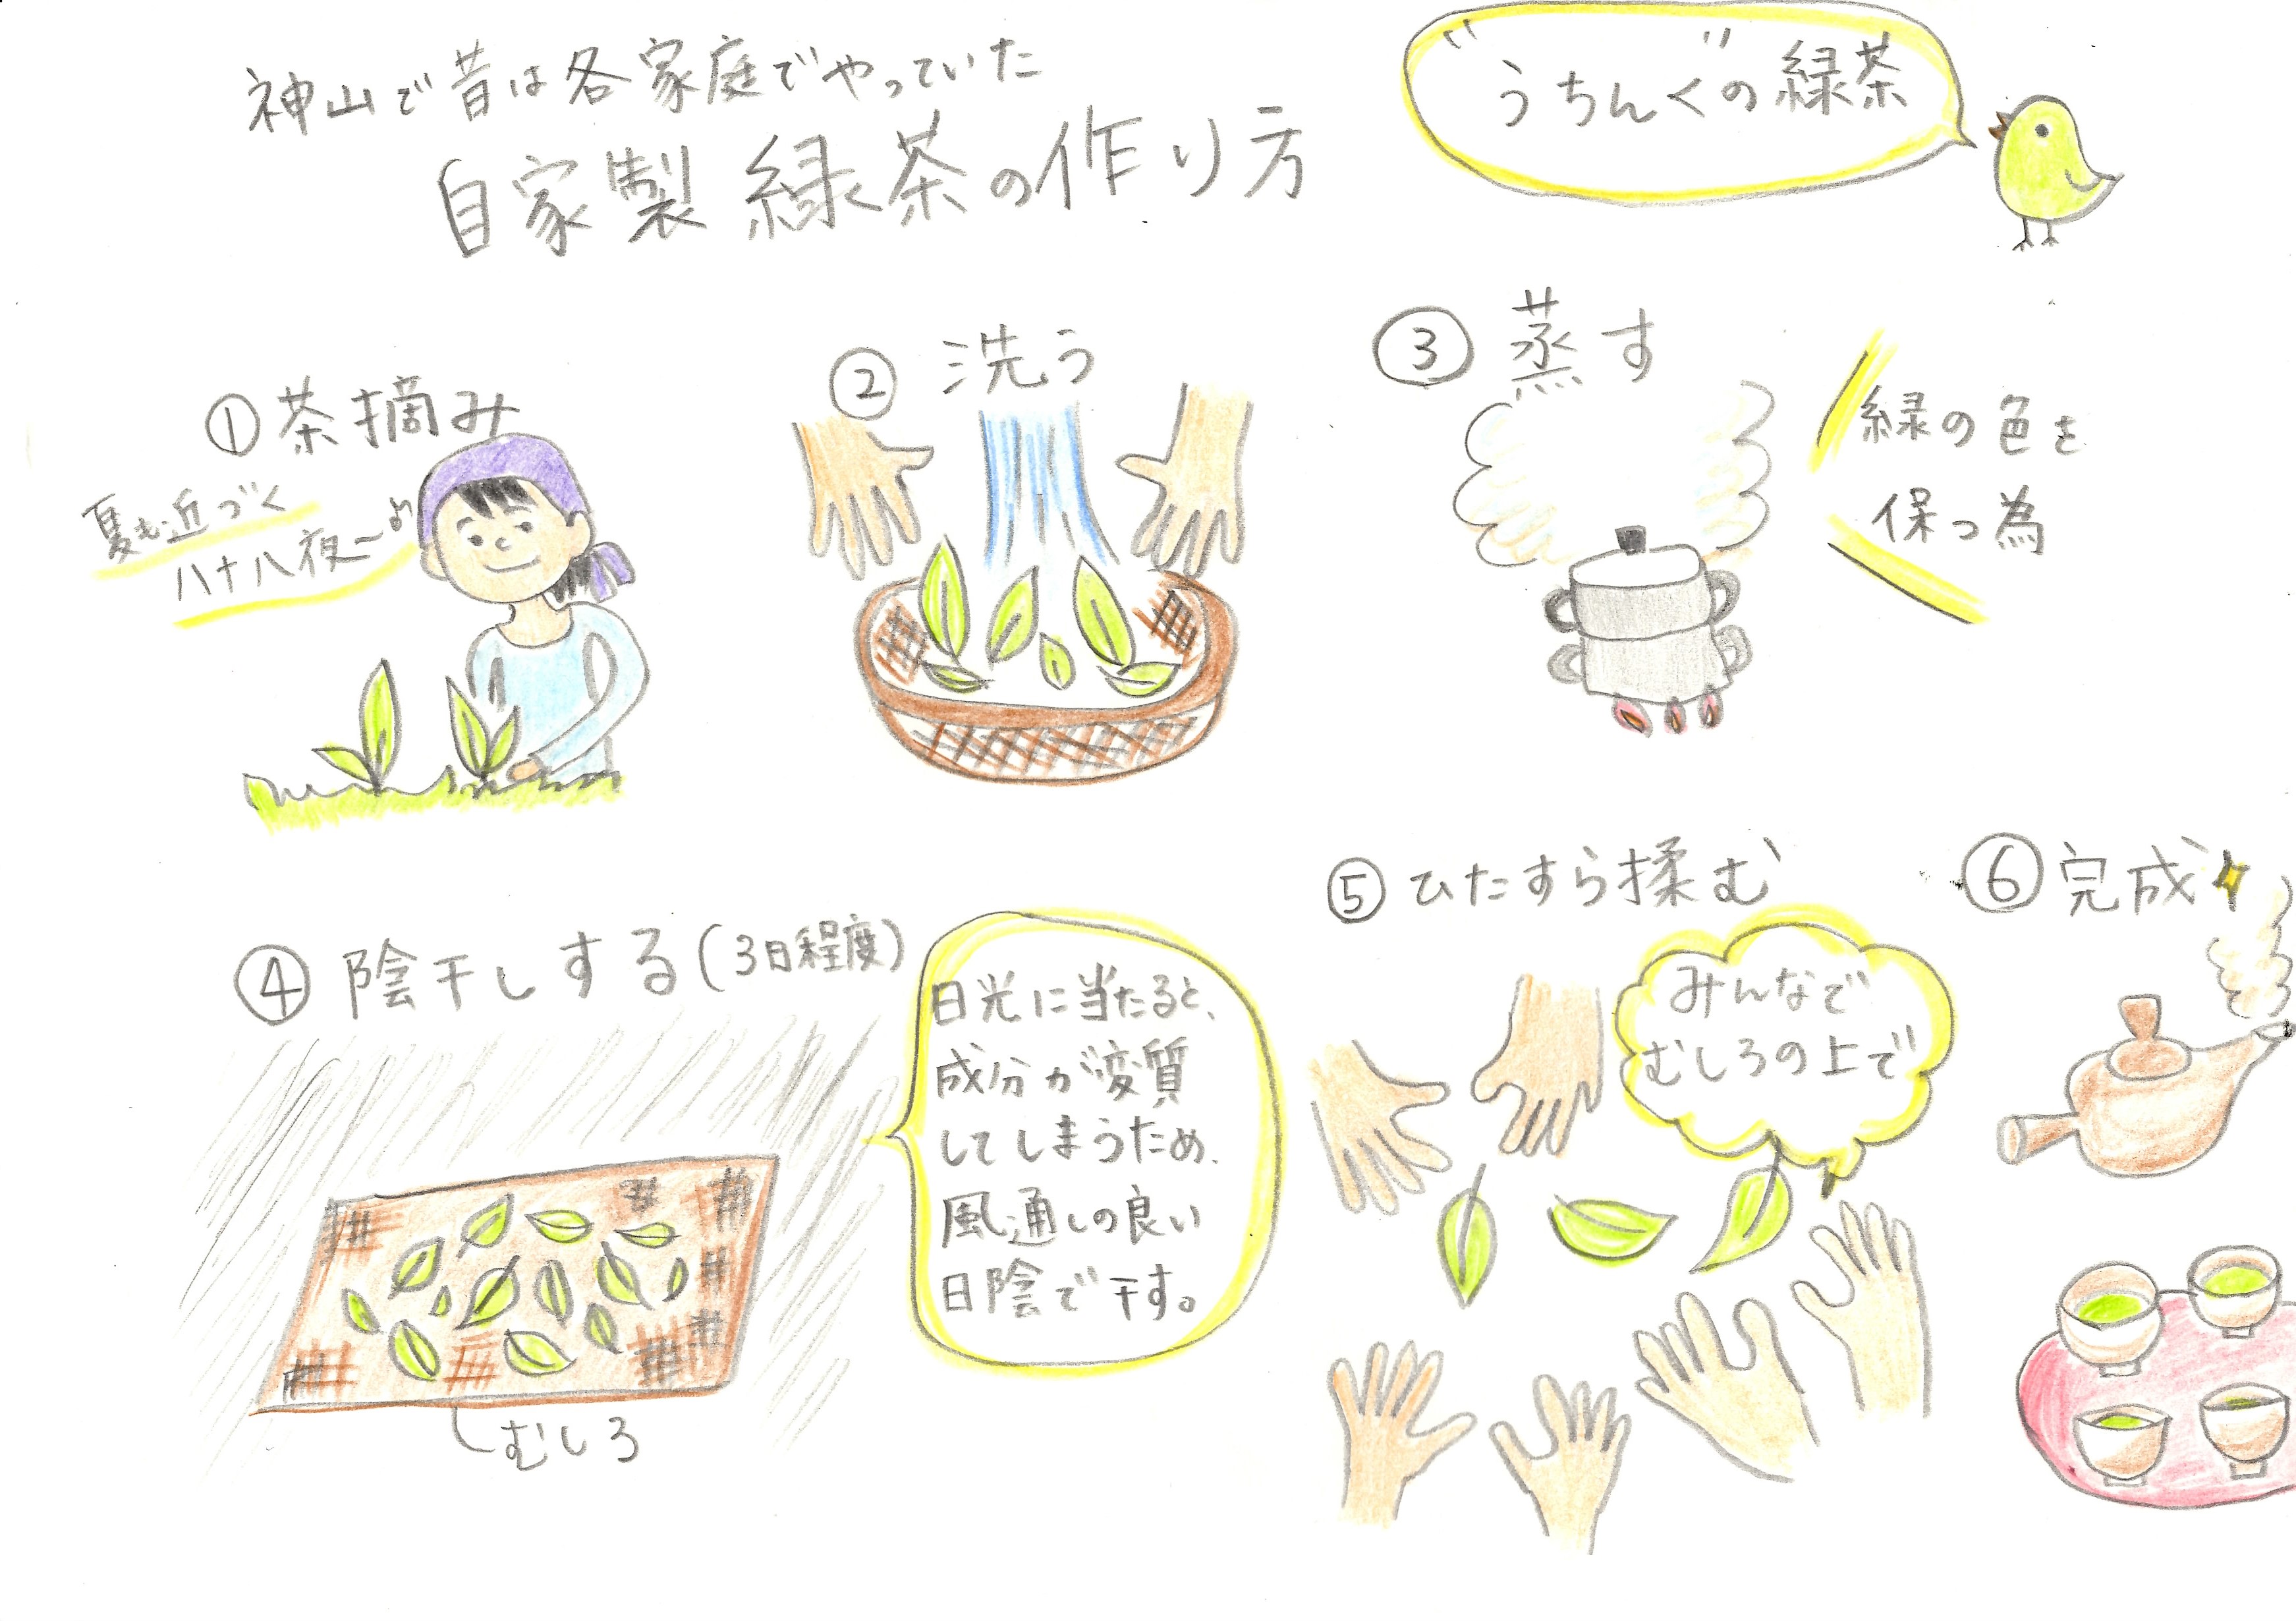 神山で昔は各家庭でやっていた
自家製緑茶の作り方
"うちんく"の緑茶
① 茶摘み
夏も近づく
八十八夜〜♪
② 洗う
③ 蒸す
緑の色を
保つ為
④ 陰干しする(3日程度)
日光に当たると、
成分が変質
してしまうため、
風通しの良い
日陰で干す。
むしろ
⑤ ひたすら揉む
みんなで
むしろの上で
⑥ 完成